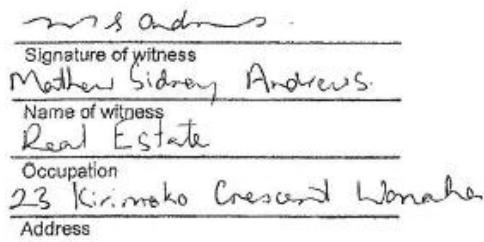 m s andrews.
Signature of witness
Mathew Sidney Andrews.
Name of witness
Real Estate
Occupation
23 Kirimoko Crescent Wanaka
Address